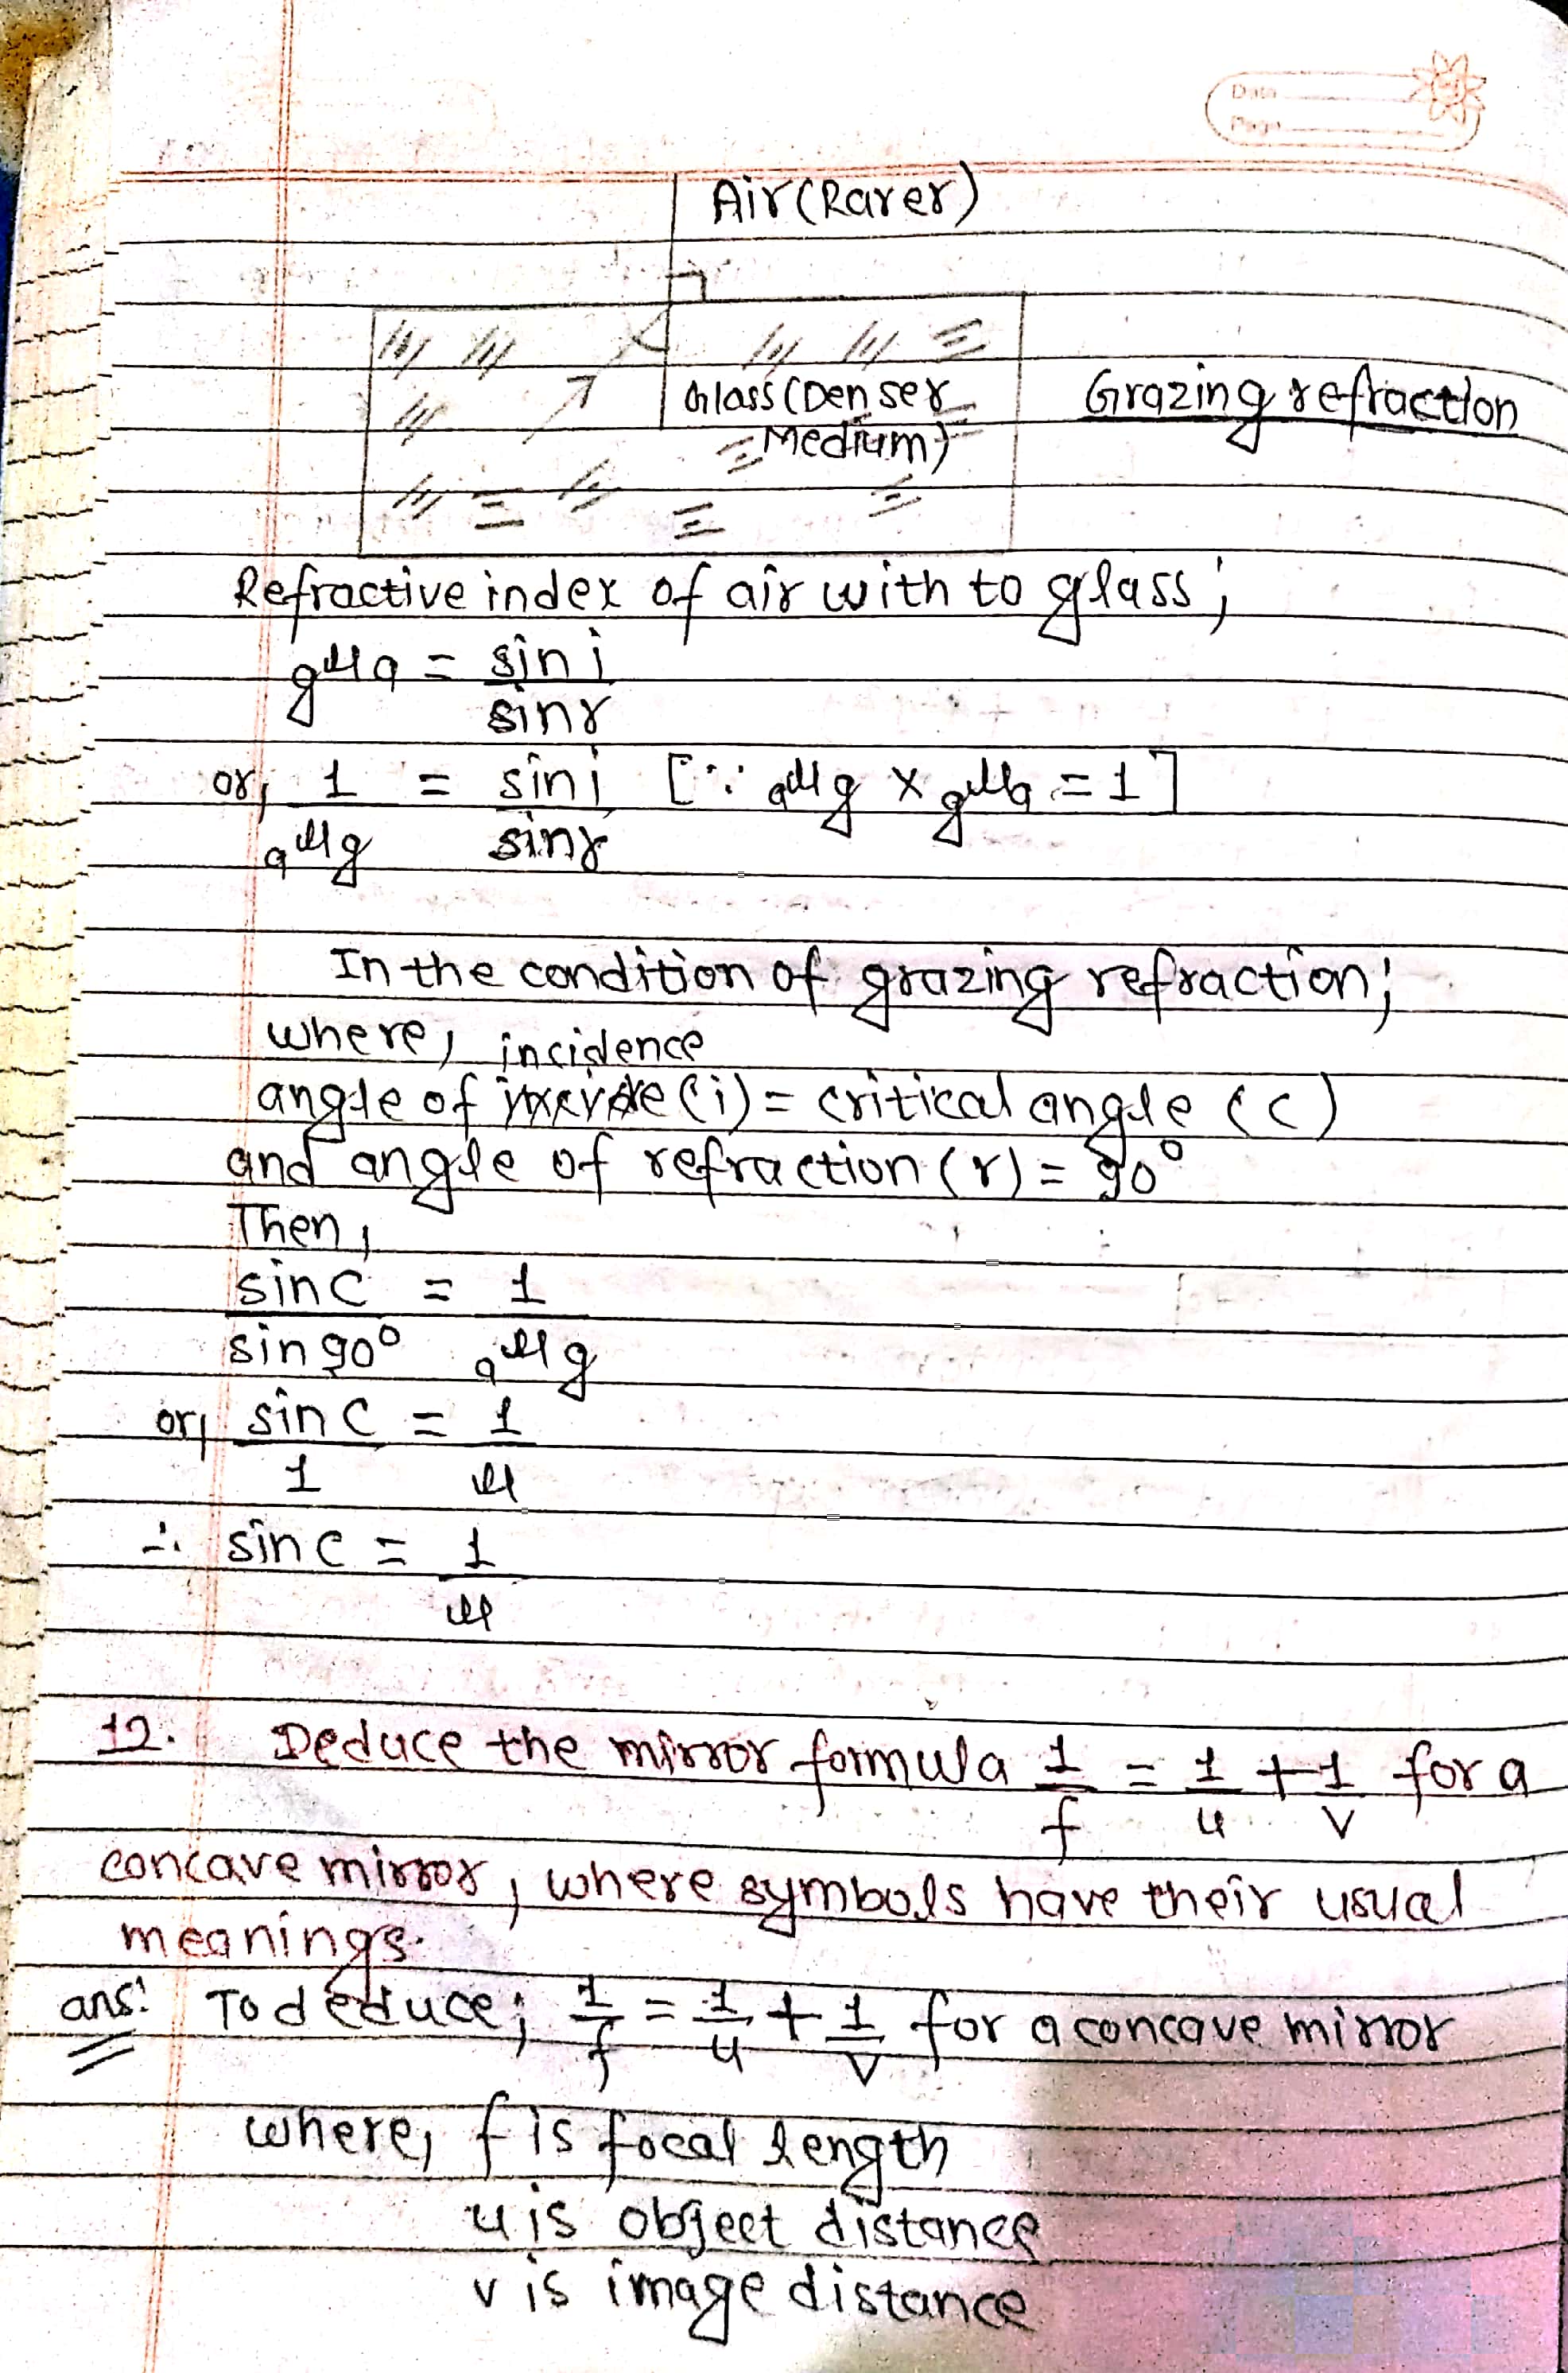 Date
Page
Air (Rarer)
Glass (Denser
Medium)
Grazing refraction
Refractive index of air with to glass;
gμa = sin i
sin r
or, 1 = sin i [∵ aμg × gμa = 1]
aμg sin r
In the condition of grazing refraction;
where, incidence
angle of (i) = critical angle (c)
and angle of refraction (r) = 90°
Then,
sin c = 1
sin 90° aμg
or, sin c = 1
1 μ
∴ sin c = 1
μ
12. Deduce the mirror formula 1 = 1 + 1 for a
f u v
concave mirror, where symbols have their usual
meanings.
ans: To deduce; 1/f = 1/u + 1/v for a concave mirror
where, f is focal length
u is object distance
v is image distance